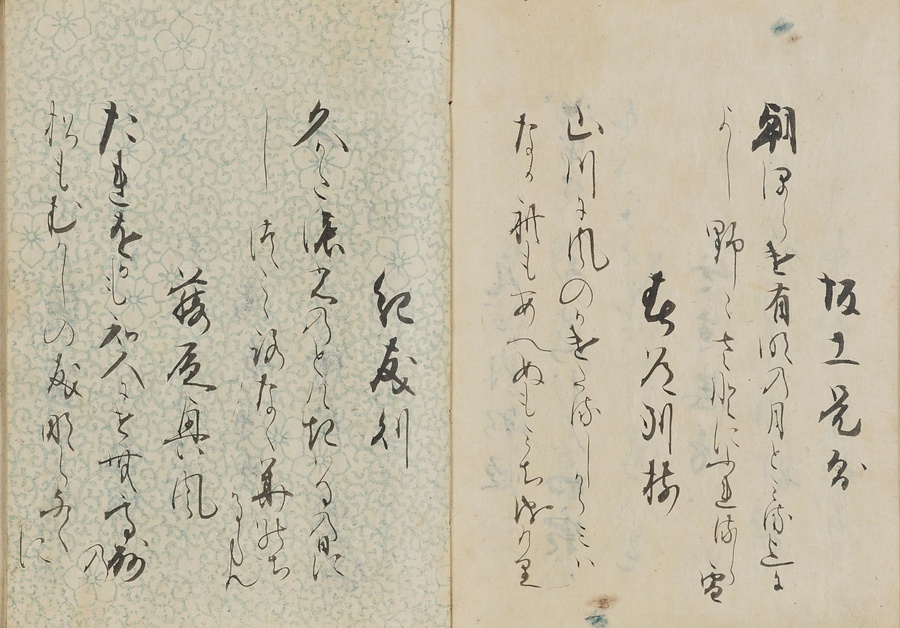 坂上是則
朝ほらけ有明の月とみる迄に
よし野ゝさとにふれるしら雪
春道列樹
山川に風のかけたるしからみは
なかれもあへぬもみちなりけり
紀友則
久かた濃光のとけき春の日に
しつ心なく花のちるらん
藤原興風
たれをかも知人にせむ高砂の
松もむかしの友ならなくに